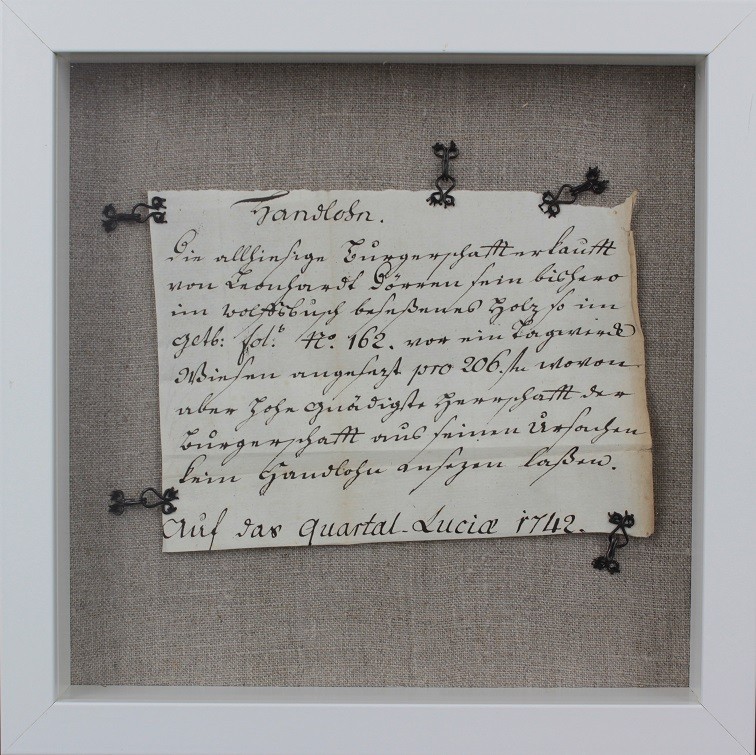 Handlohn.
Die allhiesige Burgerschafft erkaufft
von Leonhardt Dörren sein bishero
im Wolffsbuch beseßenes Holz so im
fol: No. 162. vor ein Tagwerck
Wiesen angesezt pro 206. fl wovon
aber hohe gnädigste Herrschafft der
Burgerschafft aus seinen Ursachen
kein Handlohn ansezen laßen.
Auf das Quartal-Luciæ 1742.